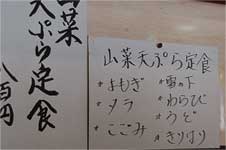 山菜
天ぷら定食
八百円
山菜天ぷら定食
*よもぎ
*タラ
*こごみ
*雪の下
*わらび
*うど